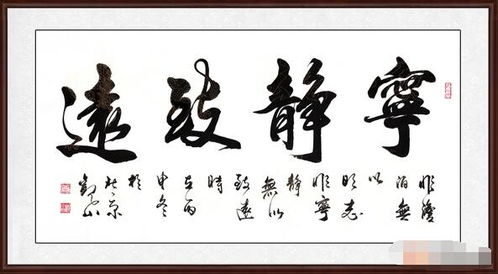 寧静致遠
非澹
泊無
以
明志
非寧
静
無以
致遠
時
在丙
申冬
於
北京